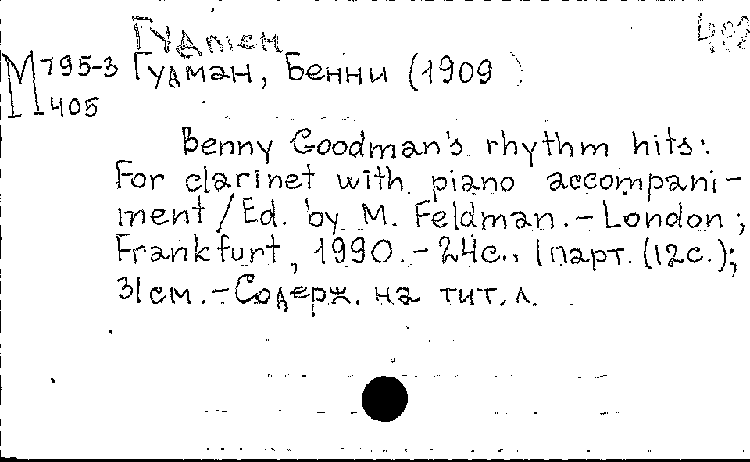 Гудмен
М 795-3
405
Гудман, Бенни (1909 )
Benny Goodman's rhythm hits:
For clarinet with piano accompani-
ment / Ed. by M. Feldman. - London;
Frankfurt, 1990. - 24с., 1 парт. (12с.);
31см. - Содерж. на тит. л.